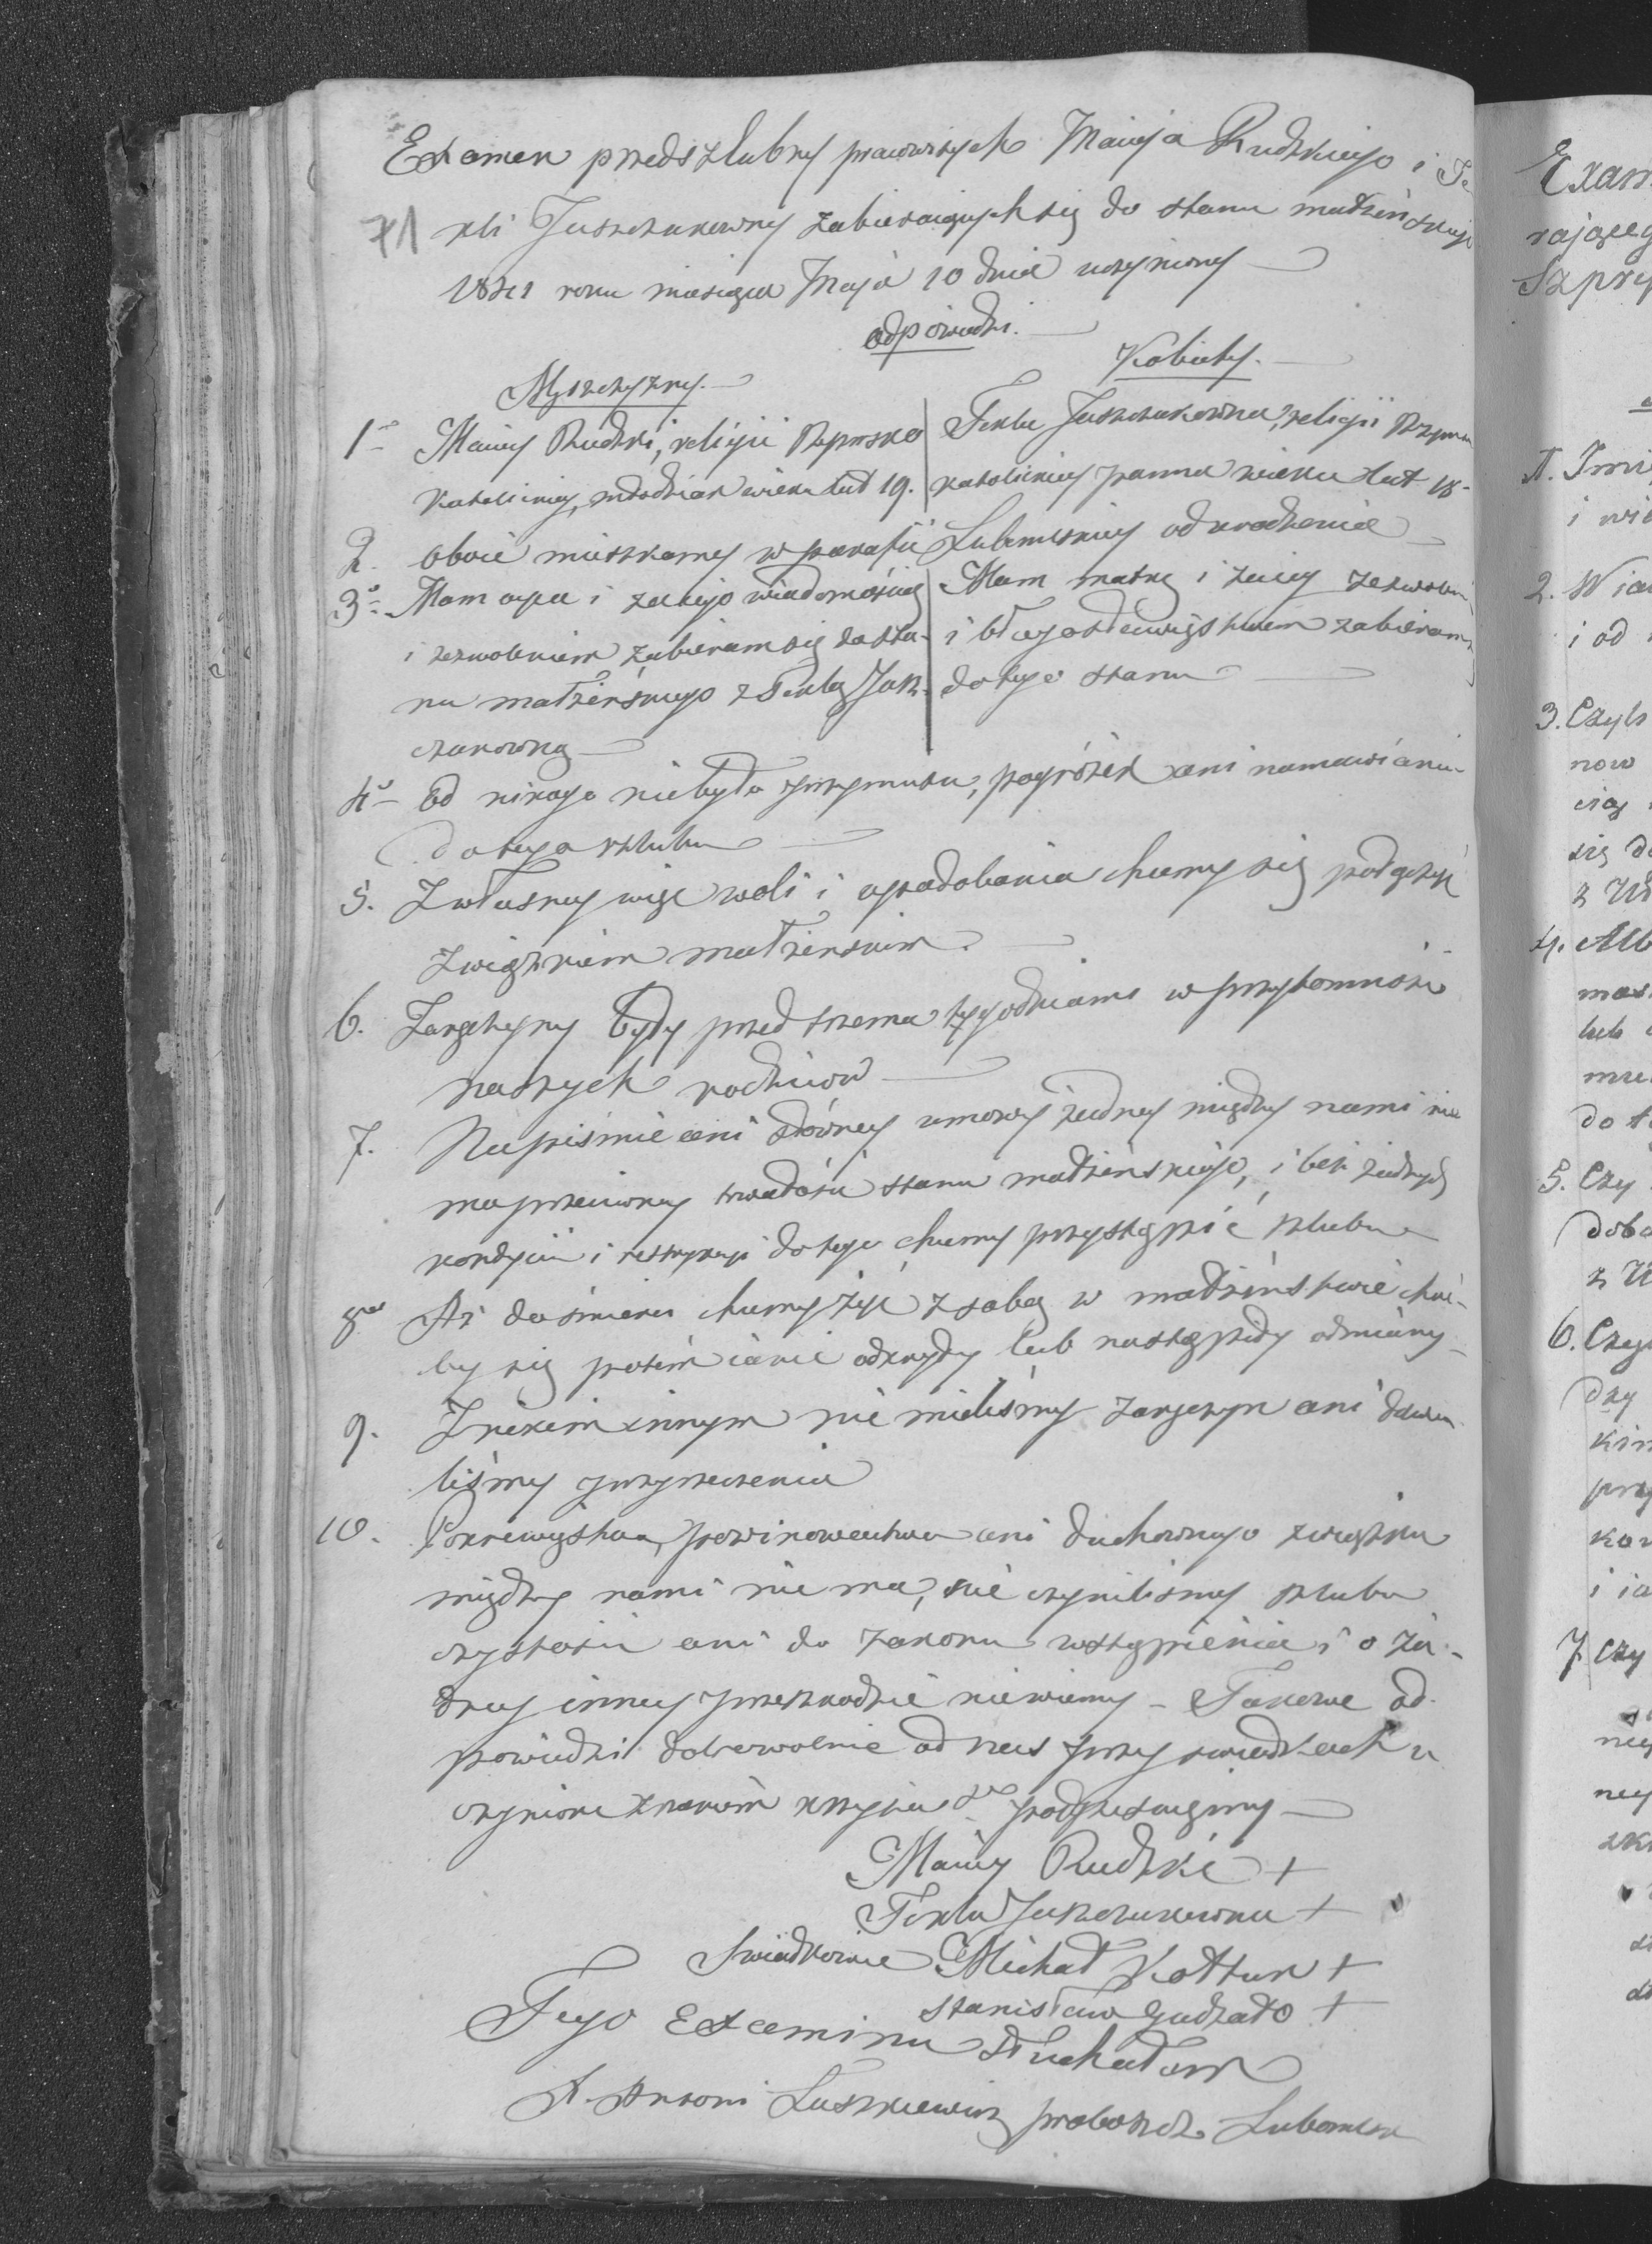 Examen przedszlubny pracowitych Macieja Rudzkiego i Te
71 kli Juszczukowny zabieraiących się do stanu małżeńskiego
1821 roku miesiąca Maja 10 dnia uczyniony
odpowiedzi.
Męszczyzny. Kobiety.
1° Maciey Rudzki, religii Rzymsko Tekla Juszczukowna, religii Rzymsko
Katolickiey, młodzian wieku lat 19. katolickiey panna wieku lat 18
2. oboie mieszkamy w parafii Lubomlskiey od urodzenia
3° Mam oyca i za iego wiadomością Mam matkę i za iey zezwole
i zezwoleniem zabieram się do sta- i błogosławieństwem zabieram
nu małżeńskiego z Teklą Jusz- do tego stanu
czukowną
4° Od nikogo niebyło przymusu, pogróżek ani namawiania
do tego szlubu
5. Z własney więc woli i upodobania chcemy się połączyć
związkiem małżenskim.
6. Zaręczyny były przed trzema tygodniami w przytomności
naszych rodziców
7. Na piśmie ani słówney umowy żadney między nami nie
ma przeciwney trwałości stanu małżeńskiego, i bez żadnych
kondycii i restrykcyi do tego chcemy przystąpić szlubu
8 Aż do śmierci chcemy żyć z sobą w małżeństwie choć-
by się potém iakie odkryły lub nastąpiły odmiany
9. Z nikim innym nie mieliśmy zaręczyn ani dawa
liśmy przyrzeczenia
10. Pokrewieństwa, powinowactwa ani duchownego związku
między nami nie ma, nie czynilismy szlubu
czystości ani do zakonu wstąpienia i o ża-
dney inney przeszkodzie niewiemy - Takowe od
powiedzi dobrowolnie od nas przy swiadkach u
czynione znakiem krzyża podpisuiemy
Maciey Rudzki +
Tekla Juszczukowna +
Swiadkowie Michał Kołtun +
Stanisław +
Tego Examinu słuchałem
X. Antoni Łuszkiewicz proboszcz Luboml